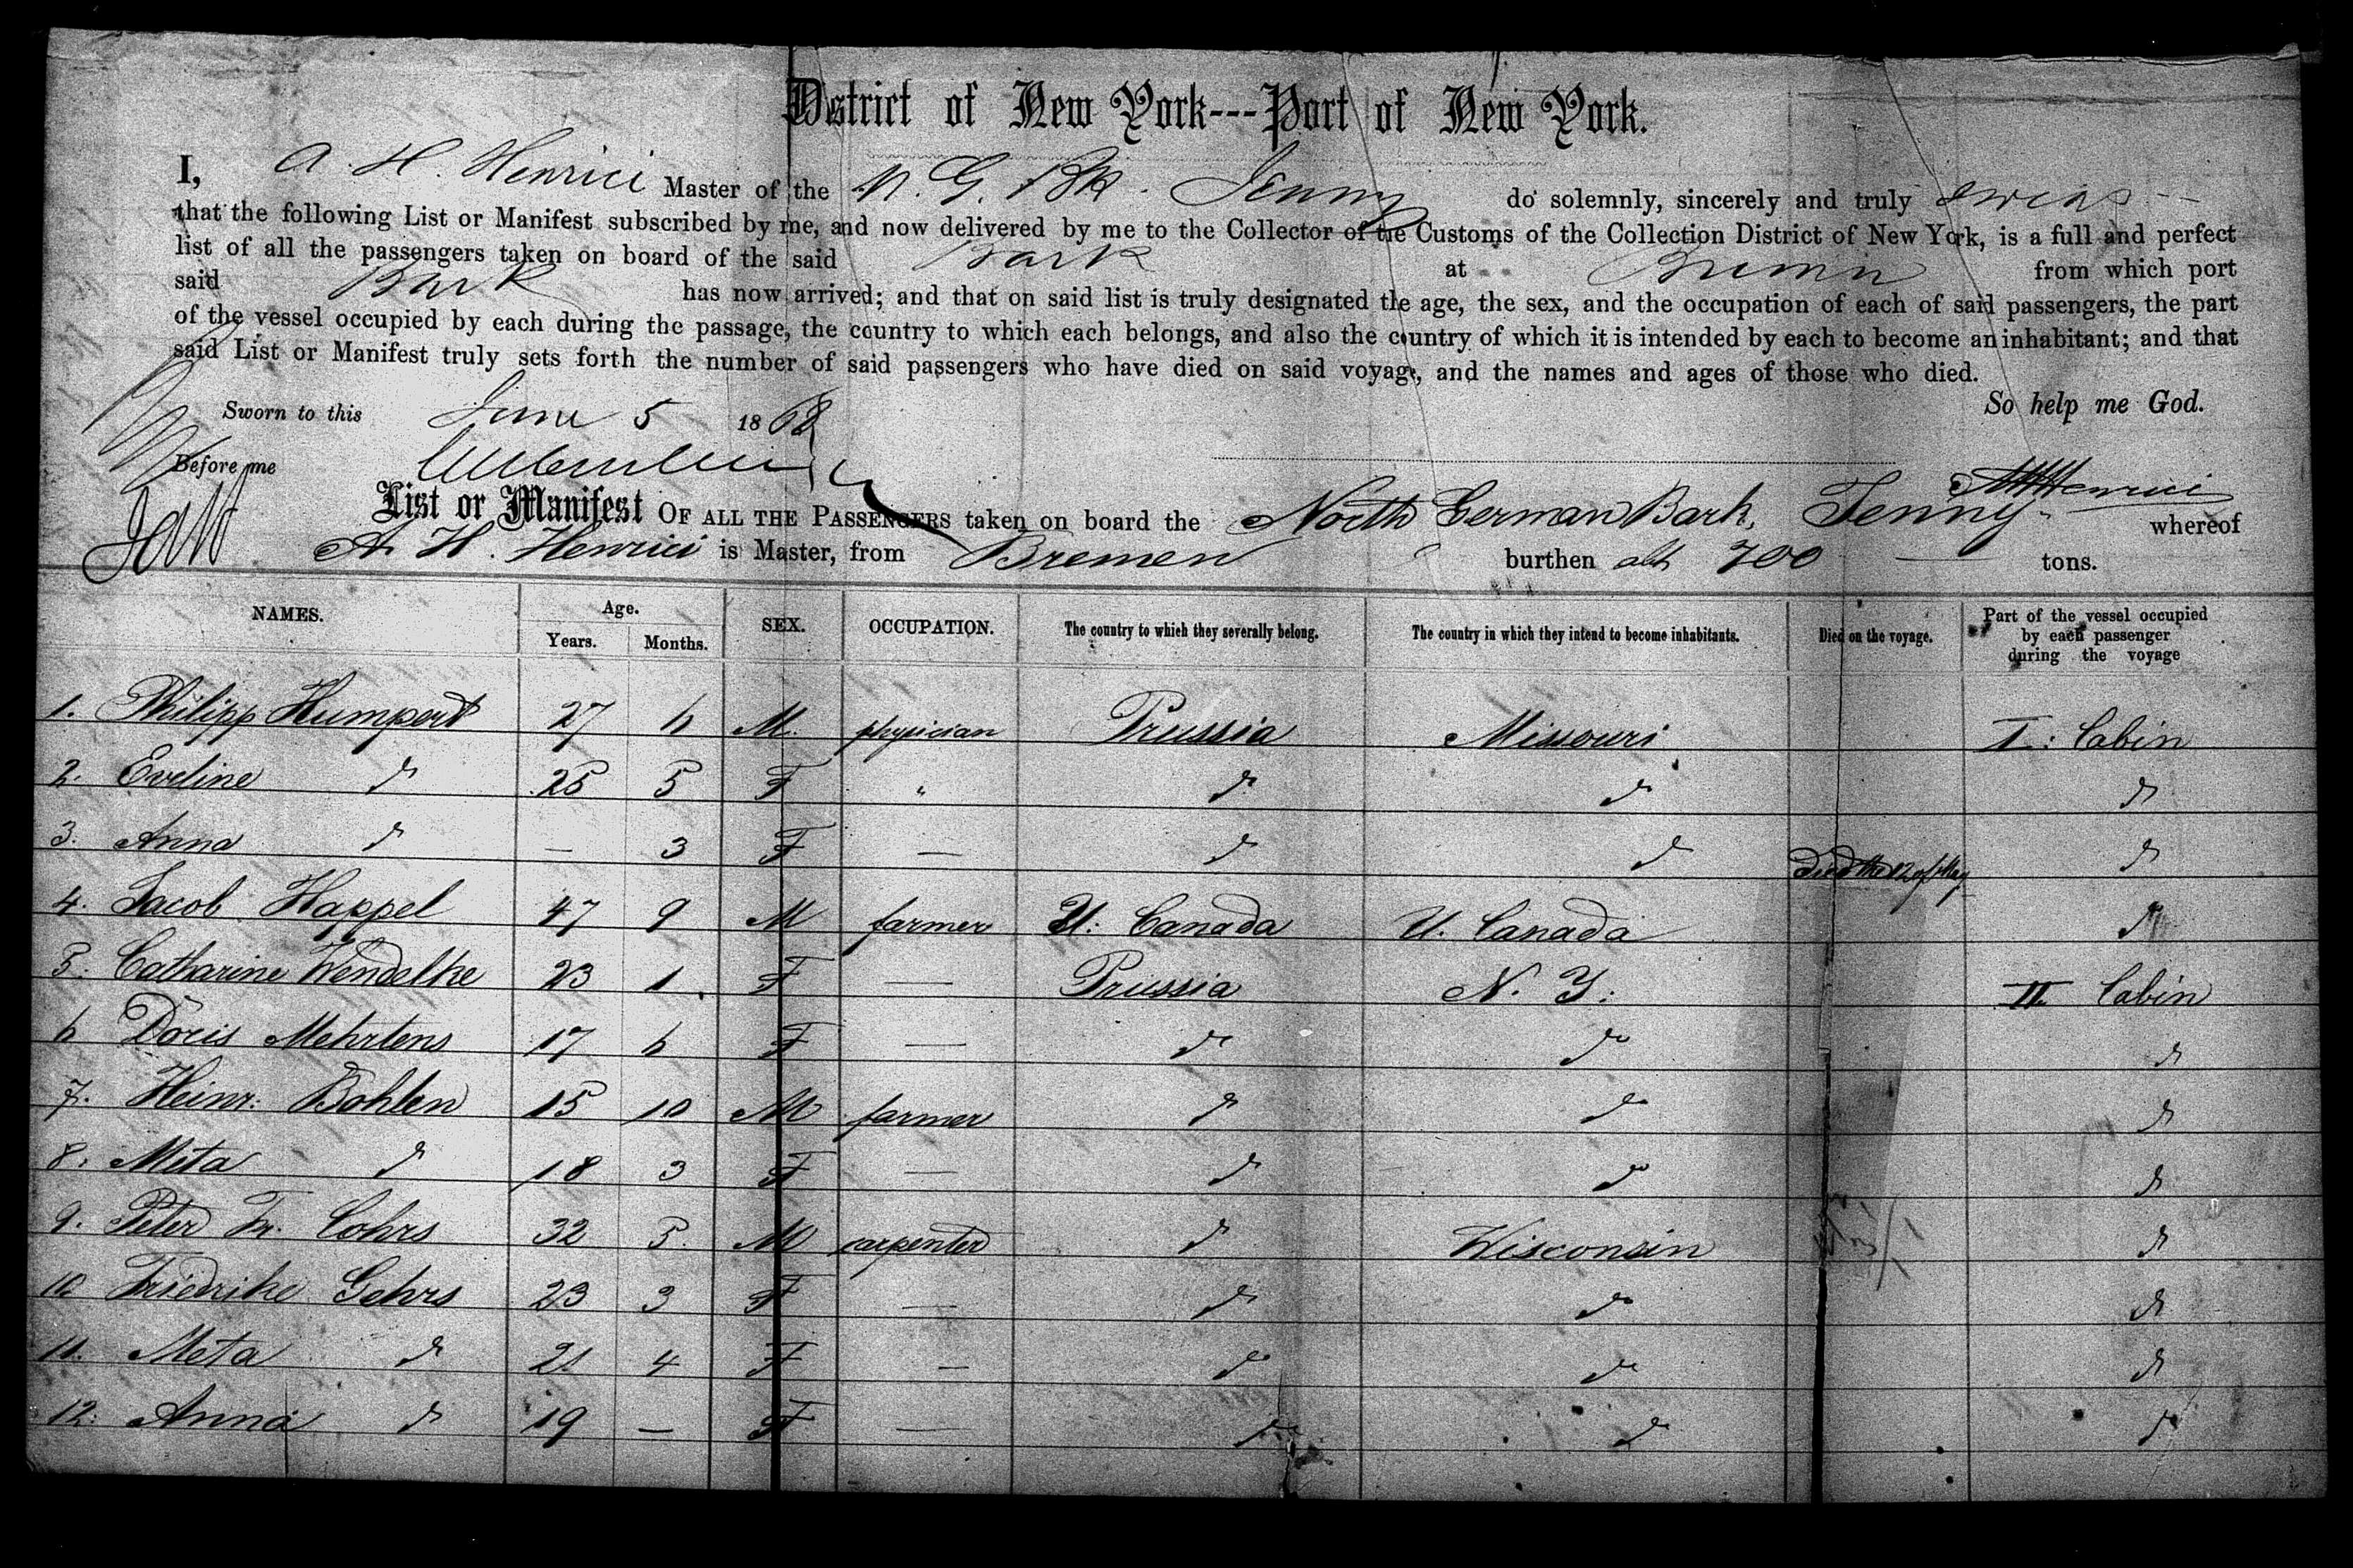 District of New York---Port of New York.
I, A. H. Henrici Master of the N. G. Bk. Jenny do solemnly, sincerely and truly swear
that the following List or Manifest subscribed by me, and now delivered by me to the Collector of the Customs of the Collection District of New York, is a full and perfect
list of all the passengers taken on board of the said Bark at Bremen from which port
said Bark has now arrived; and that on said list is truly designated the age, the sex, and the occupation of each of said passengers, the part
of the vessel occupied by each during the passage, the country to which each belongs, and also the country of which it is intended by each to become an inhabitant; and that
said List or Manifest truly sets forth the number of said passengers who have died on said voyage, and the names and ages of those who died.
So help me God.
Sworn to this June 5 1868
Before me
AHHenrici
List or Manifest OF ALL THE PASSENGERS taken on board the North German Bark, Jenny whereof
A. H. Henrici is Master, from Bremen burthen abt 700 tons.
NAMES. Age. Years. Months. SEX. OCCUPATION. The country to which they severally belong. The country in which they intend to become inhabitants. Died on the voyage. Part of the vessel occupied by each passenger during the voyage
1. Philipp Humpert 27 6 M. physician Prussia Missouri I. Cabin
2. Eveline d 25 5 F " d d d
3. Anna d — 3 F — d d Died the 12 of May d
4. Jacob Happel 47 9 M farmer U. Canada U. Canada d
5. Catharine Wendelke 23 1 F — Prussia N. Y. II Cabin
6 Doris Mehrtens 17 6 F — d d d
7. Heinr. Bohlen 15 10 M farmer d d d
8. Meta d 18 3 F — d d d
9. Peter Fr. Cohrs 32 5. M carpenter d Wisconsin d
10 Friedrike Gehrs 23 3 F — d d d
11. Meta d 21 4 F — d d d
12. Anna d 19 — F — d d d